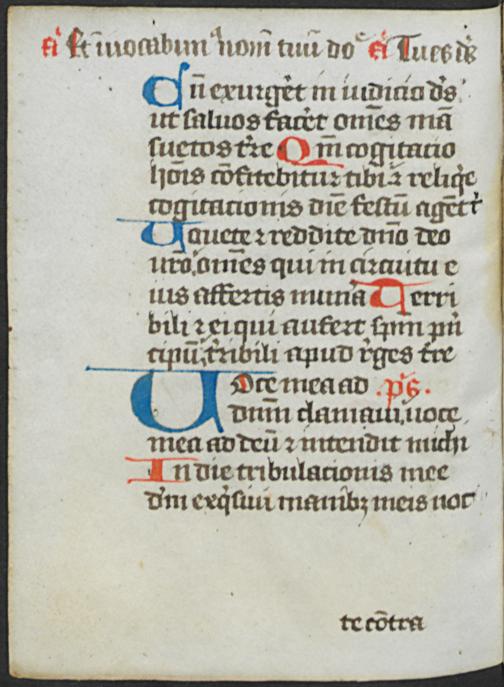 a̅ Et i̅uocabim᷒ nom̅ tuu̅ do a̅ Tu es ds̅
Cu̅ exurg̅et in iudicio ds̅
ut saluos facet om̅es ma̅
suetos tr̅e Qm̅ cogitacio
ho̅is co̅fitebitur tibi ⁊ reliq̅e
cogitacionis die̅ festu̅ agent t᷑
Uouete ⁊ reddite dn̅o deo
ur̅o, om̅es qui in circuitu e
ius affertis mun̅a Terri
bili ⁊ ei qui aufert spm̅ pn̅
cipu̅, tr̅ibili apud r̅ges tr̅e
Uoce mea ad .ps̅.
dnm̅ clamaui, uoce
mea ad deu̅ ⁊ intendit michi
In die tribulacionis mee
dm̅ exq̅siui manibꝫ meis noc
te co̅tra